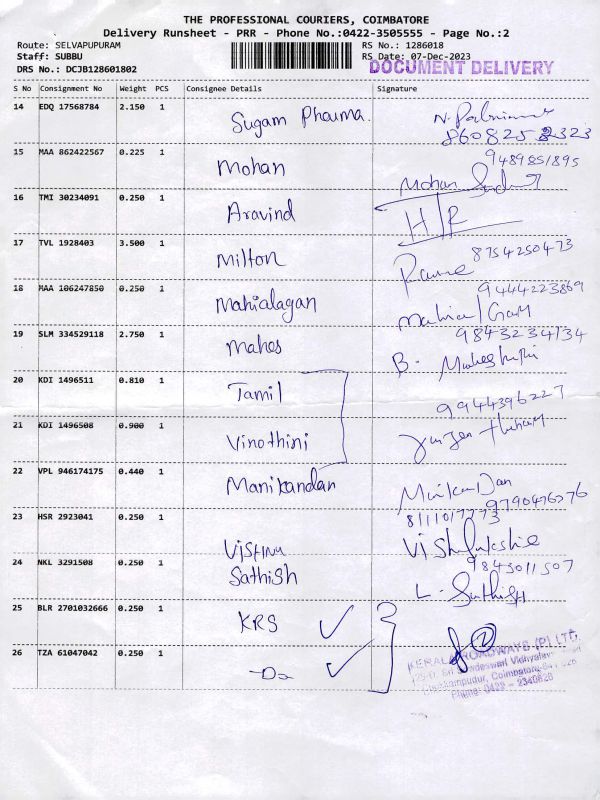 THE PROFESSIONAL COURIERS, COIMBATORE
Delivery Runsheet - PRR - Phone No.:0422-3505555 - Page No.:2
Route: SELVAPUPURAM RS No.: 1286018
Staff: SUBBU RS Date: 07-Dec-2023
DRS No.: DCJB128601802 DOCUMENT DELIVERY
S No Consignment No Weight PCS Consignee Details Signature
14 EDQ 17568784 2.150 1 Sugam Pharma.
15 MAA 862422567 0.225 1 Mohan 9489851895
Mohan
16 TMI 30234091 0.250 1 Aravind H/R
17 TVL 1928403 3.500 1 Milton 8754250473
18 MAA 106247850 0.250 1 Mahialagan 9444223869
19 SLM 334529118 2.750 1 Mahes 9843234134
B.
20 KDI 1496511 0.810 1 Tamil 9944396227
21 KDI 1496508 0.900 1 Vinothini
22 VPL 946174175 0.440 1 Manikandan
9790476576
23 HSR 2923041 0.250 1 Vishnu 8111017773
24 NKL 3291508 0.250 1 Sathish 9845011507
L. Sathish
25 BLR 2701032666 0.250 1 KRS
26 TZA 61047042 0.250 1 -Do
KERALA ROADWAYS (P) LTD,
Phone: 0422 - 2340828